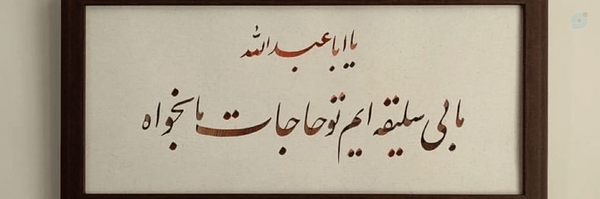 یا اباعبدالله
ما بی سلیقه ایم تو حاجات ما بخواه